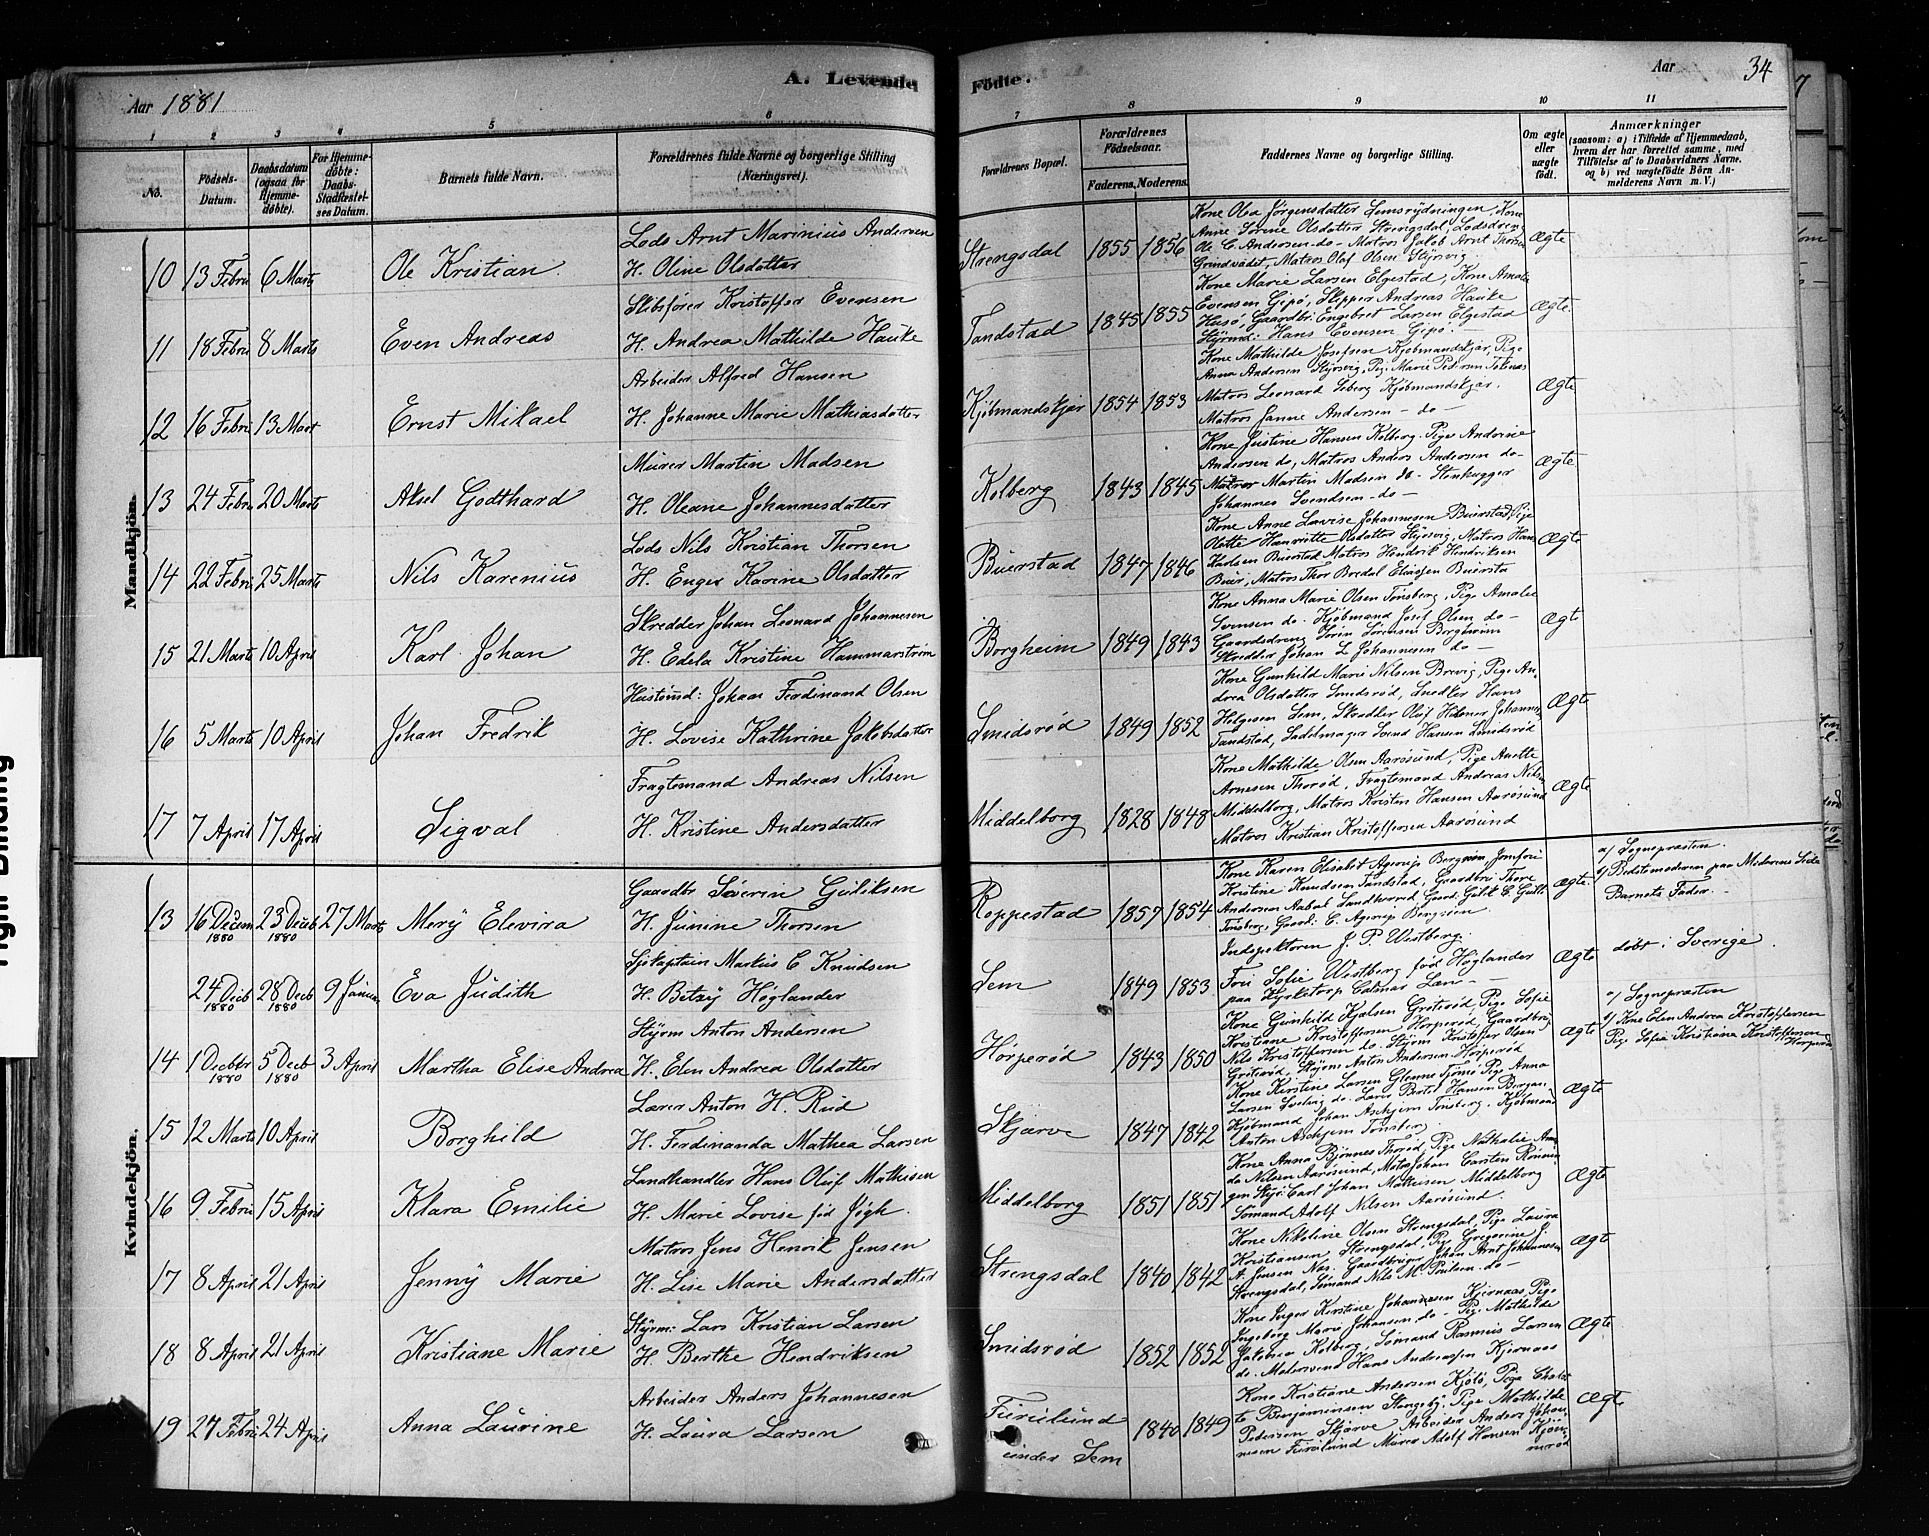 A. Levende Fødte.
Aar 1881
Aar
34
1 2 3 4 5 6 7 8 9 10 11
No.
Fødsels-Datum.
Daabsdatum (ogsaa for Hjemmedøbte).
For Hjemmedøbte: Daabs-Stadfæstelses Datum.
Barnets fulde Navn.
Forældrenes fulde Navne og borgerlige Stilling (Næringsvei).
Forældrenes Bopæl.
Forældrenes Fødselsaar.
Faderens. Moderens.
Faddernes Navne og borgerlige Stilling.
Om ægte eller uægte født.
Anmærkninger
(saasom: a) i Tilfælde af Hjemmedaab, hvem der har forrettet samme, med Tilføielse af to Daabsvidners Navne. og b) ved uægtefødte Børn Anmelderens Navn m.V.)
Mandkjøn.
10 13 Febru 6 Marts Ole Kristian
Lods Arnt Marinius Andersen
H. Oline Olsdatter
Strengsdal 1855 1856
Kone Olea Jørgensdatter Lemsrydningen, Kone
Anne Sørine Olsdatter Strengsdal, Lodsdreng
Ole C. Andersen do- Matros Jakob Arnt Thorsen
Grindvadet, Matros Olaf Olsen Stjrsvig.
Ægte
11 18 Febru 8 Marts Even Andreas
Skibsfører Kristoffer Evensen
H. Andrea Mathilde Hauke
Tandstad 1845 1855
Kone Marie Larsen Elgestad, Kone Amalie
Evensen Gipø, Skipper Andreas Hauke
Husø, Gaardbr: Engebret Larsen Elgestad
Styrmd: Hans Evensen Gipø. -
Ægte.
12 16 Febru 13 Mart Ernst Mikael
Arbeider Alfred Hansen
H. Johanne Marie Mathiasdatter
Kjøbmandskjær 1854 1853
Kone Mathilde Josefsen Kjøbmandskjær, Pige
Anna Andersen Stjrsvig, Pig. Marie Pedersen
Matros Leonard Seberg Kjøbmandskjær.
Matros Janne Andersen - do -
Ægte
13 24 Febru 20 Marts Aksel Godthard
Murer Martin Madsen
H. Oleane Johannesdatter
Kolberg 1843 1845
Kone Justine Hansen Kolberg. Pige Andrine
Andersen do, Matros Anders Andersen do-
Martin Madsen do- Stenhugger
Johannes Svendsen - do -
Ægte
14 22 Febru 25 Marts Nils Karenius
Lods Nils Kristian Thorsen
H. Enger Karine Olsdatter
Buerstad 1847 1846
Kone Anne Lovise Johannesen Buerstad, Pige
Olette Henriette Olsdatter Stjrsvig, Matros Hans
Karlsen Buerstad Matros Hendrik Hendriksen
Buer, Matros Thor Bredal Eliasen Buersta
Ægte
15 21 Marts 10 April Karl Johan
Skredder Johan Leonard Johannesen
H. Edela Kristine Hammarstrøm
Borgheim 1849 1843
Kone Anna Marie Olsen Tønsberg, Pige Amalie
Svensen do. Kjøbmand Josef Olsen do-
Gaardsdreng Sørin Sørensen Borgheim
Skredder Johan L Johannesen do-
Ægte
16 5 Marts 10 April Johan Fredrik
Hustømd: Johan Ferdinand Olsen
H. Lovise Kathrine Jakobsdatter
Smidsrød 1849 1852
Kone Gunhild Marie Nilsen Brevig, Pige An-
drea Olsdatter Smidsrød, Snedker Hans
Helgesen Sem, Skredder Olaf Johannes
Tandstad, Sadelmager Svend Hansen Smidsrød
Ægte
17 7 April 17 April Sigval
Fragtemand Andreas Nilsen
H. Kristine Andersdatter
Middelborg 1828 1848
Kone Mathilde Olsen Aarøsund, Pige Anette
Arnesen Thorød, Fragtemand Andreas Nilsen
Middelborg, Matros Kristen Hansen Aarøsund
Matros Kristian Kristoffersen Aarøsund
Ægte
Kvindekjøn.
13 16 Decem 1880 23 Deceb 1880 27 Marts Mery Elevira
Gaardbr Severin Guliksen
H. Junine Thorsen
Roppestad 1857 1854
Kone Karen Elisabet Agerup Bergsien, Jomfru
Kristine Knudsen Tandstad, Gaardbru Thore
Andersen Aabøl Gaard. Gulik C. Gulli
Tønsberg, Gaard: C. Agerup Bergsien.
Ægte
a/ Sognepræsten.
b/ Bedstemoderen paa Moderens Side
Barnets Fader. -
24 Decb 1880 28 Decb 1880 9 Januar Eva Judith
Sjøkaptain Markus C Knudsen
H. Betzy Høglander
Sem 1849 1853
Indspektoren J. P. Westberg.
Fru Sofie Westberg født Høglander
paa Hyrketorp Calmar Læn -
Ægte
døbt i Sverige.
14 1 Decbbr 1880 5 Decb 1880 3 April Martha Elise Andrea
Styrm Anton Andersen
H. Elen Andrea Olsdatter
Hørperød 1843 1850
Kone Gunhilde Kjølsen Grøterød, Pige Sofie
Kristiane Kristoffersen Hørperød, Gaardbrug
Nils Kristoffersen do- Styrm Kristoffer Olsen
Grøterød, Styrm Anton Andersen Hørperød
Ægte
a/ Sognepræsten
b/ Kone Elen Andrea Kristoffersen
Pige Sofie Kristiana Kristoffersen
Hørperø
15 12 Marts 10 April Borghild
Lærer Anton H. Rud
H. Ferdinanda Mathea Larsen
Skjærve 1847 1842
Kone Kirstine Larsen Glenne Tjømø Pige Anna
Larsen do. Lærer Bertel Hansen Bergan
Kjøbmand Johan Aschjem Tønsberg. Kjøbmand
Anton Aschjem Tønsberg.
Ægte
16 9 Febru 15 April Klara Emilie
Landhandler Hans Oluf Mathisen
H. Marie Lovise fød Jøgh.
Middelborg 1851 1851
Kone Anna Bjønnes Thorød, Pige Nathalie Aman
da Nilsen Aarøsund, Matros Johan Carsten Rønnin
gen Carl Johan Mathisen Middelborg
Sømand Adolf Nilsen Aarøsund.
Ægte
17 8 April 21 April Jenny Marie
Matros Jens Henrik Jensen
H. Lise Marie Andersdatter
Strengsdal 1840 1842
Kone Nikoline Olsen Strengsdal, Pige Laura
Kristiansen Strengsdal, Pige Gregorine J.
A. Jensen Nes. Gaardbruger Johan Arnt Johannesen
Strengsdal, Sømand Nils M. Poulsen do-
Ægt
18 8 April 21 April Kristiane Marie
Styrm: Lars Kristian Larsen
H. Berthe Hendriksen
Smidsrød 1852 1852
Kone Inger Kirstine Johannesen Kjernaas, Pige
Ingeborg Marie Johansen do- Pige Mathilde
Jakobsen Kolberg, Sømand Rasmus Larsen
do. Hans Andreassen Kjernaas
Ægte
19 27 Febru 24 April Anna Laurine
Arbeider Anders Johannesen
H. Laura Larsen
Furulund 1840 1849
under Sem
Kone Kristiane Andersen Kjølø, Pige Charlot
te Benjaminsen Slengeby, Pige Mathilde
Pedersen Skjærve Arbeider Anders Johan
nesen Furulund Murer Adolf Hansen Kjøn
nerød
Ægt